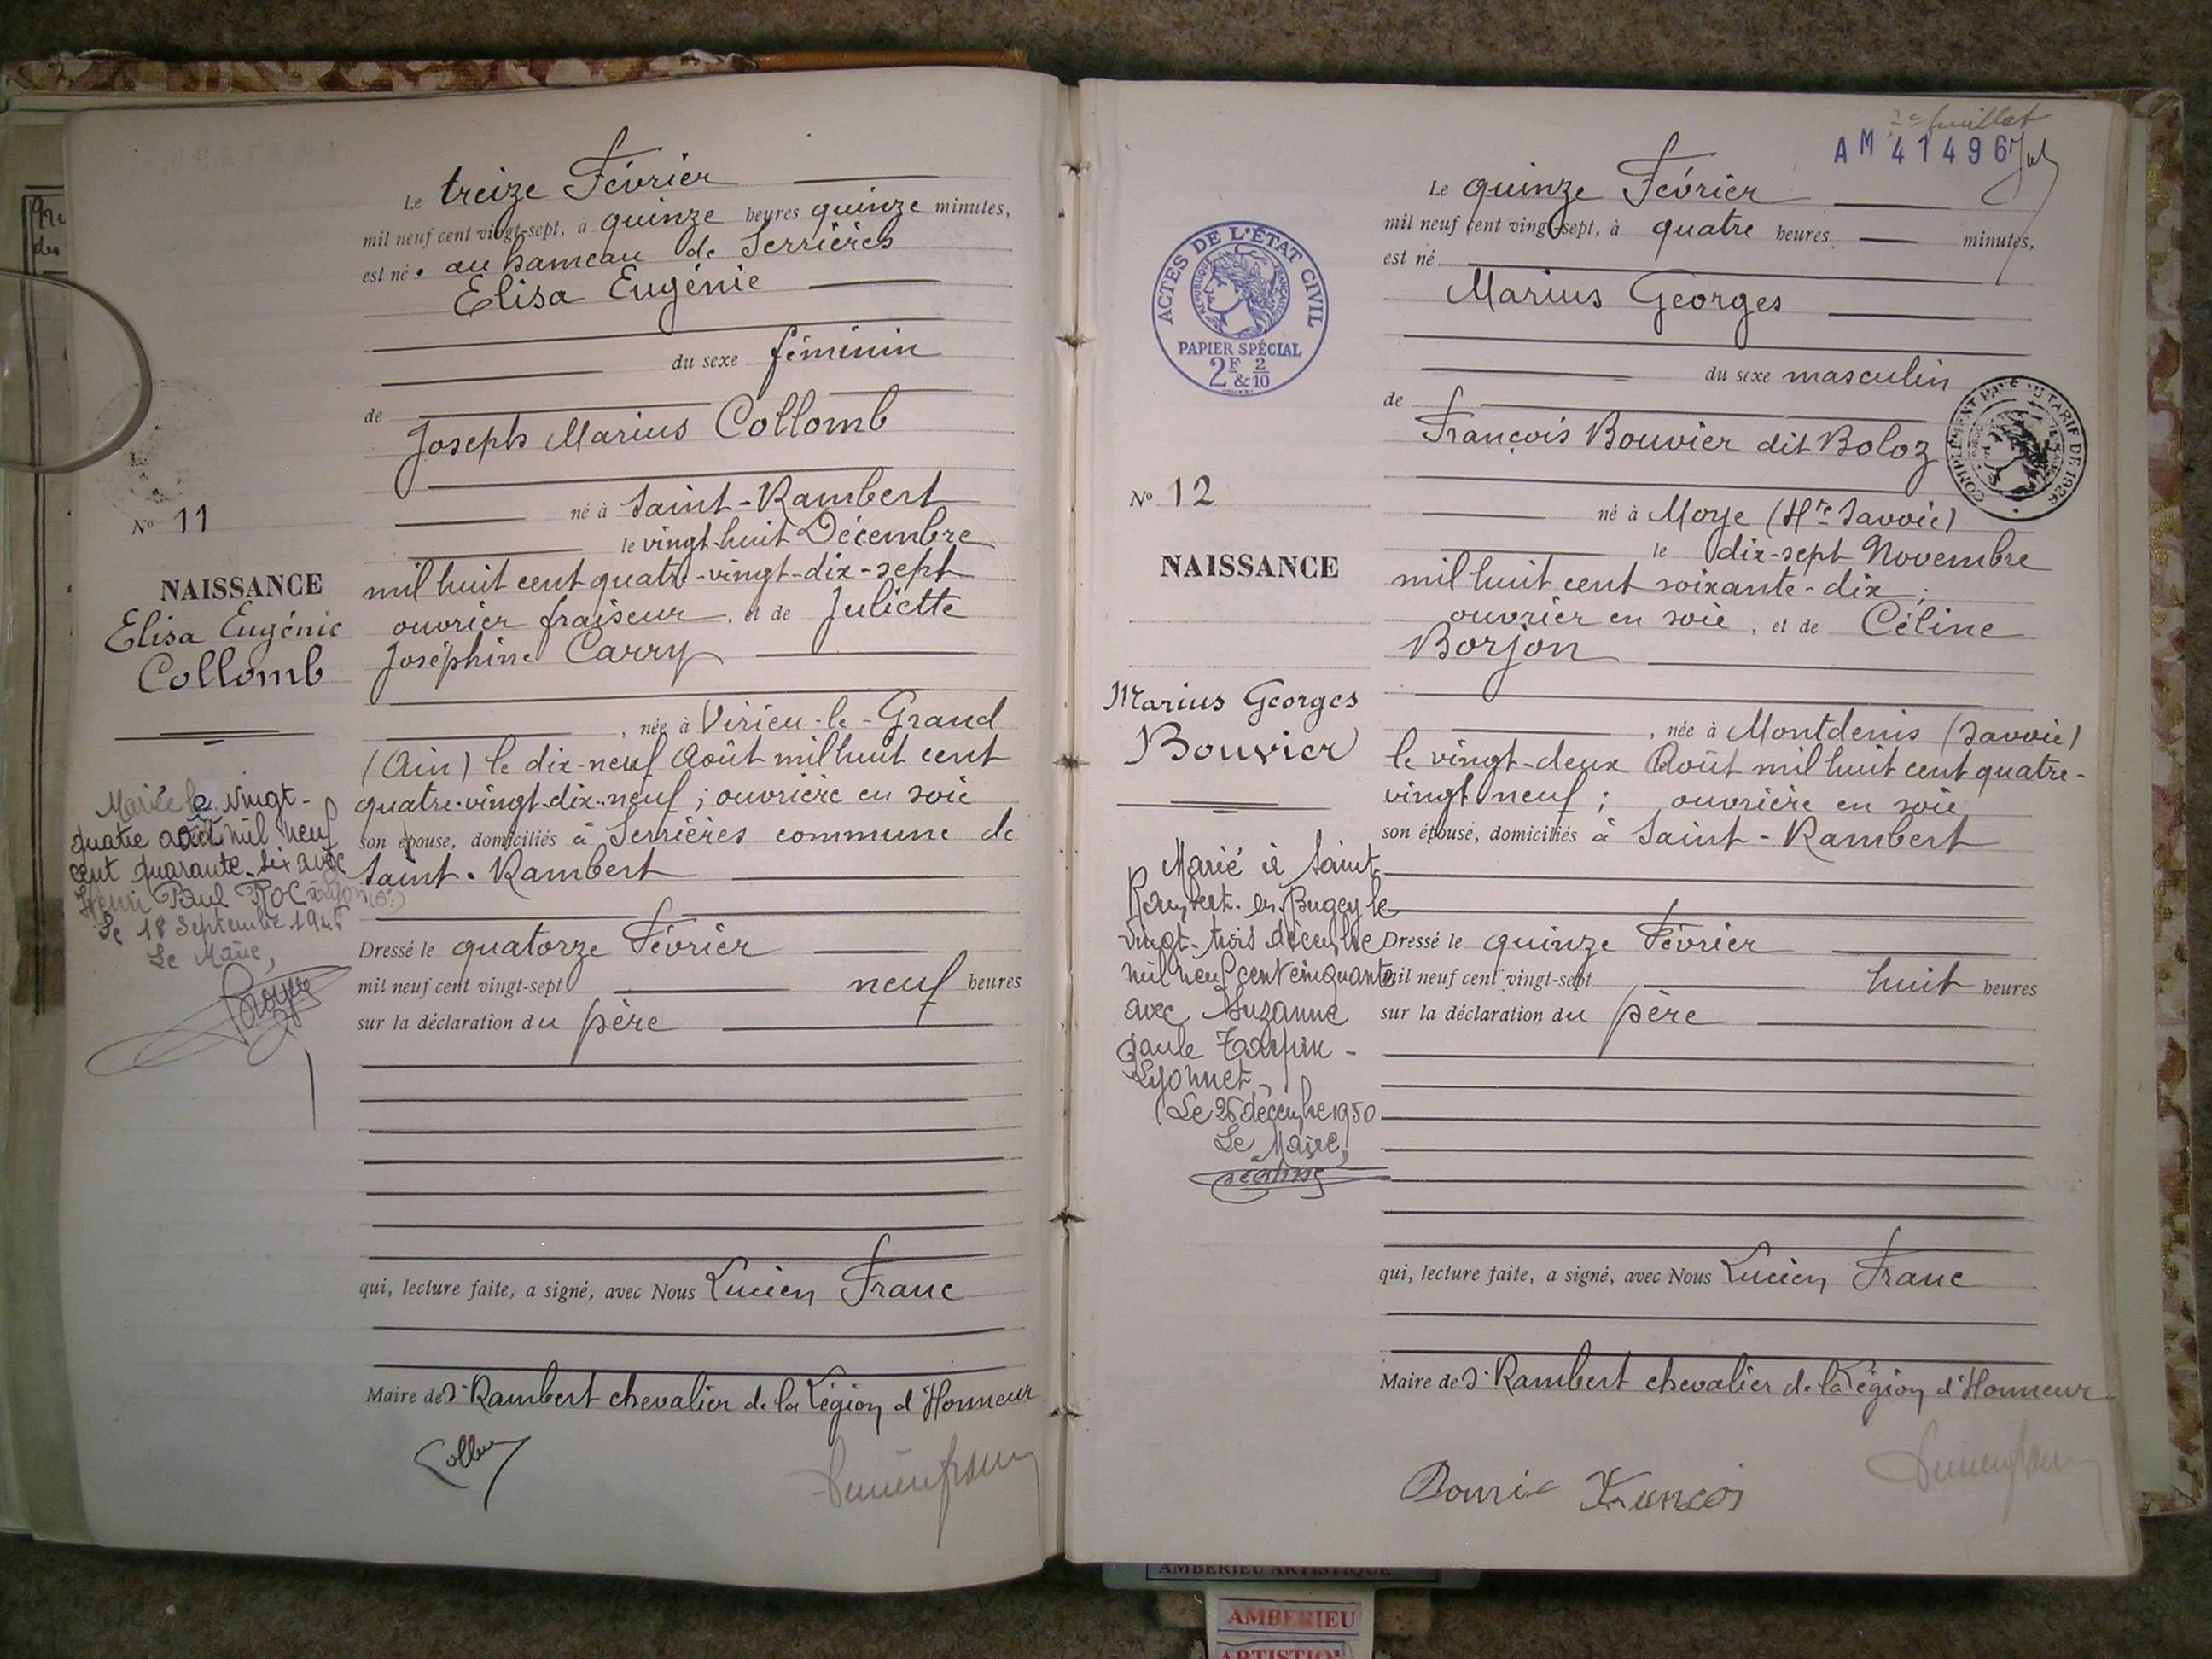 Le treize Février
mil neuf cent vingt-sept, à quinze heures quinze minutes,
est né e au hameau de Serrières
Elisa Eugénie
du sexe féminin
de
Joseph Marius Collomb
né à Saint-Rambert
le vingt-huit Décembre
mil huit cent quatre-vingt-dix-sept
ouvrier fraiseur, et de Juliette
Joséphine Carry
, née à Virieu-le-Grand
(Ain) le dix-neuf Août mil huit cent
quatre-vingt-dix-neuf ; ouvrière en soie
son épouse, domiciliés à Serrières commune de
Saint-Rambert
Dressé le quatorze Février
mil neuf cent vingt-sept neuf heures
sur la déclaration du père
qui, lecture faite, a signé, avec Nous Lucien Franc
Maire de St Rambert chevalier de la Légion d'Honneur
No 11
NAISSANCE
Elisa Eugénie
Collomb
Mariée le vingt-
quatre août mil neuf
cent quarante-six avec
Henri Paul à Lyon
Le 18 Septembre
Le Maire,
AM 41496
Le quinze Février
mil neuf cent vingt-sept, à quatre heures minutes,
est né
Marius Georges
du sexe masculin
de
François Bouvier dit Boloz
né à Moye (Hte Savoie)
le dix-sept Novembre
mil huit cent soixante-dix ;
ouvrier en soie, et de Céline
Borjon
, née à Montdenis (Savoie)
le vingt-deux Août mil huit cent quatre-
vingt neuf ; ouvrière en soie
son épouse, domiciliés à Saint-Rambert
Dressé le quinze Février
mil neuf cent vingt-sept huit heures
sur la déclaration du père
qui, lecture faite, a signé, avec Nous Lucien Franc
Maire de St Rambert chevalier de la Légion d'Honneur
ACTES DE L'ÉTAT CIVIL
RÉPUBLIQUE FRANÇAISE
PAPIER SPÉCIAL
2F & 2/10
COMPLÉMENT PAYÉ AU TARIF DE 1926
No 12
NAISSANCE
Marius Georges
Bouvier
Marié à Saint-
Rambert-en-Bugey le
vingt-trois décembre
mil neuf cent cinquante
avec Suzanne
Paule
Lyonnet
Le 26 décembre 1950
Le Maire,
AMBERIEU ARTISTIQUE
AMBERIEU
ARTISTIQUE